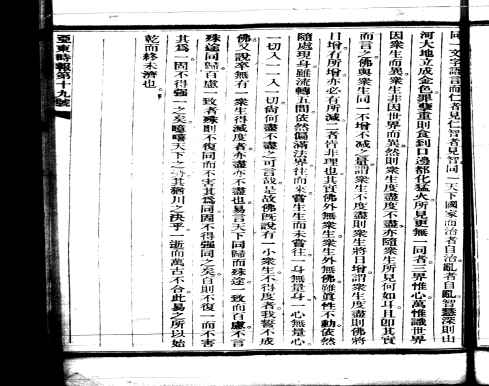 同一文字語言而仁者見仁智者見智同一天下國家而治者自治亂者自亂智慧深則山
河大地立成金色罪孽重則食到口邊都化猛火所見更無一同者三界惟心萬惟識世界
因衆生而異衆生非因世界而異然則衆生度盡度不盡亦隨衆生所見何如耳且即其實
而言之佛與衆生同一不增不減之量謂衆生不度盡則衆生將日增謂衆生度盡則佛將
日增有所增亦必有所減二者皆非理也其實佛外無衆生衆生外無佛雖眞性不動依然
隨處現身雖流轉五閒依然偏滿法界往而未嘗生生而未嘗往一身無量身一心無量心
一切入一一入一切尙何盡不盡之可言哉是故佛旣說有一小衆生不得度者我誓不成
佛又說卒無有一衆生得滅度者亦盡亦不盡也易言天下同歸而殊途一致而百慮不言
殊途同歸百慮一致者殊則不復同而不害其爲同固不得强同之矣百則不復一而不害
其爲一固不得强一之矣噫嘻天下之勢其猶川之決乎一逝而萬古不合此易之所以始
乾而終未濟也
亞東時報第十九號